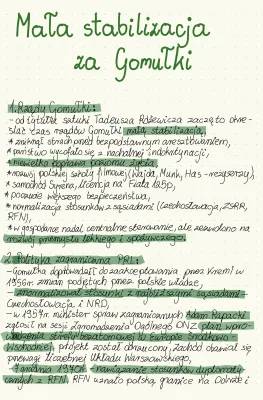 Mała stabilizacja
za Gomułki
1. Rządy Gomułki:
- od tytułu sztuki Tadeusza Różewicza zaczęto okre-
ślać czas rządów Gomułki małą stabilizacją,
* zniknął strach przed bezpodstawnym aresztowaniem,
* państwo wycofało się z nachalnej indoktrynacji,
* niewielka poprawa poziomu życia,
* rozwój polskiej szkoły filmowej (Wajda, Munk, Has - reżyserzy)
* samochód Syrena, licencja na Fiata 125p,
* poczucie większego bezpieczeństwa,
* normalizacja stosunków z sąsiadami (Czechosłowacja, ZSRR,
RFN),
* w gospodarce nadal centralne sterowanie, ale zezwolono na
rozwój przemysłu lekkiego i spożywczego.
2. Polityka zagraniczna PRL:
- Gomułka doprowadził do zaakceptowania przez Kreml w
1956r. zmian podjętych przez polskie władze,
- znormalizował stosunki z najbliższymi sąsiadami -
Czechosłowacją i NRD,
- w 1957r. minister spraw zagranicznych Adam Rapacki
zgłosił na sesji Zgromadzenia Ogólnego ONZ plan wpro-
wadzenia strefy bezatomowej w Europie Środkowo -
Wschodniej, projekt został odrzucony, Zachód obawiał się
przewagi liczebnej Układu Warszawskiego,
- 7 grudnia 1970r. - nawiązanie stosunków dyplomaty-
cznych z RFN. RFN uznało polską granicę na Odrze i